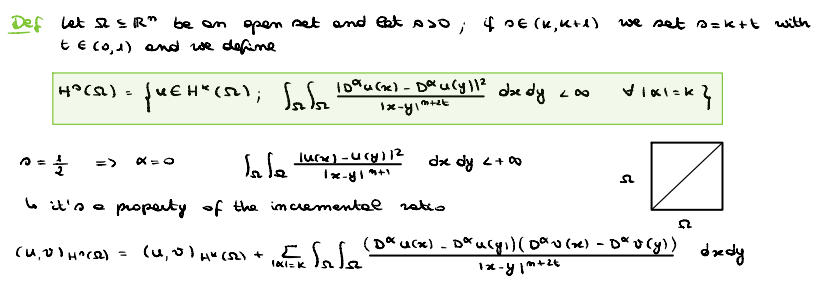 Def Let Ω ⊆ ℝⁿ be an open set and let s>0 ; if s∈(k,k+1) we set s=k+t with
t∈(0,1) and we define
Hˢ(Ω) = { u∈Hᵏ(Ω) ; ∫_Ω ∫_Ω |Dᵅu(x) - Dᵅu(y)|² / |x-y|ⁿ⁺²ᵗ dx dy < ∞ ∀ |α|=k }
s = 1/2 => α=0 ∫_Ω ∫_Ω |u(x)-u(y)|² / |x-y|ⁿ⁺¹ dx dy <+∞ Ω
↳ it's a property of the incremental ratio
Ω
(u,v)_{Hˢ(Ω)} = (u,v)_{Hᵏ(Ω)} + Σ_{|α|=k} ∫_Ω ∫_Ω (Dᵅu(x) - Dᵅu(y))(Dᵅv(x) - Dᵅv(y)) / |x-y|ⁿ⁺²ᵗ dxdy